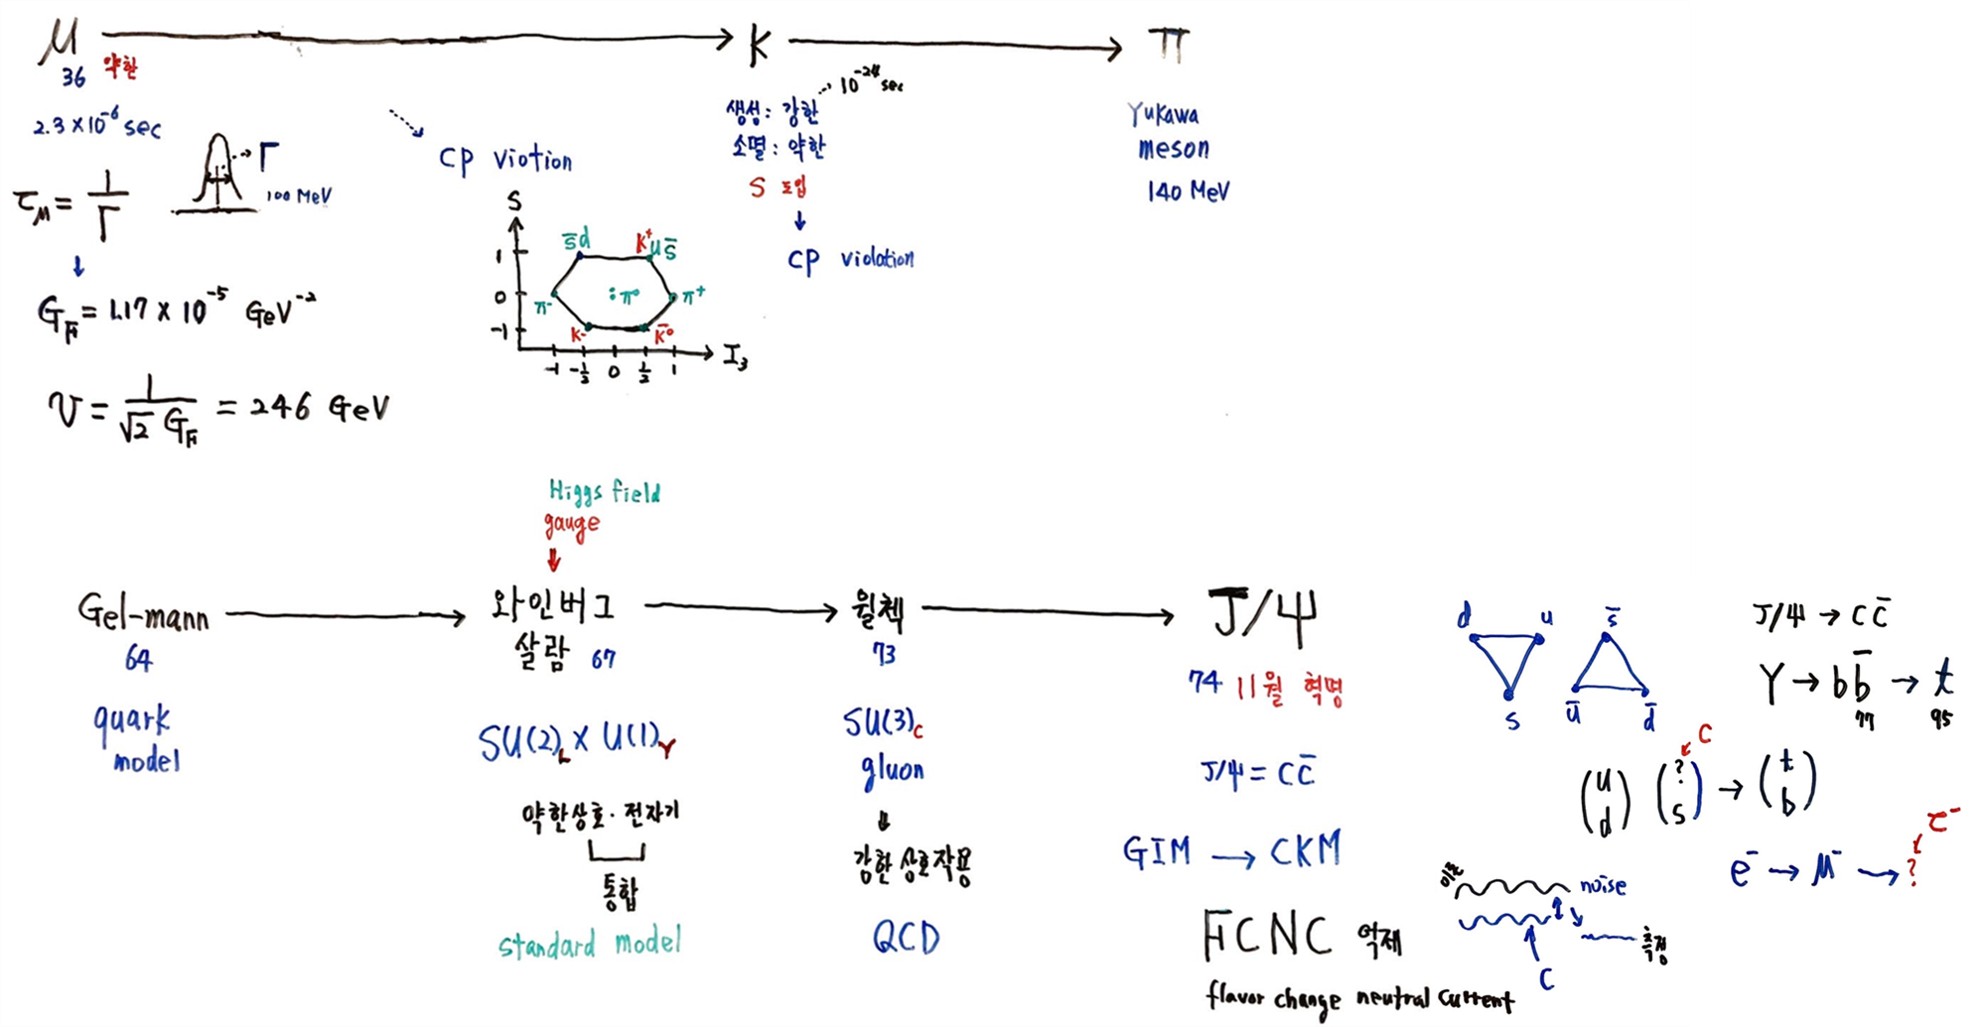 μ → K → π
36 약한
2.3×10⁻⁶ sec
τ_μ = 1/Γ
Γ
100 MeV
↓
G_F = 1.17 × 10⁻⁵ GeV⁻²
v = 1/(√2 G_F) = 246 GeV
CP viotion
S
1
0
-1
s̄d
K⁺ us̄
π⁻
:π⁰
π⁺
K⁻
K̄⁰
-1 -1/2 0 1/2 1
I₃
10⁻²⁴ sec
생성: 강한
소멸: 약한
S 도입
↓
CP violation
Yukawa
meson
140 MeV
Higgs field
gauge
↓
Gel-mann → 와인버그 → 윌첵 → J/ψ
64
quark
model
살람 67
SU(2)_L × U(1)_Y
약한상호·전자기
통합
standard model
73
SU(3)_C
gluon
↓
강한상호작용
QCD
74 11월 혁명
J/ψ = cc̄
GIM → CKM
FCNC 억제
flavor change neutral current
d u
s
s̄
ū d̄
J/ψ → cc̄
Υ → bb̄ → t
77 95
C
(u d) (? s) → (t b)
τ⁻
e⁻ → μ⁻ → ?
이론
noise
측정
C